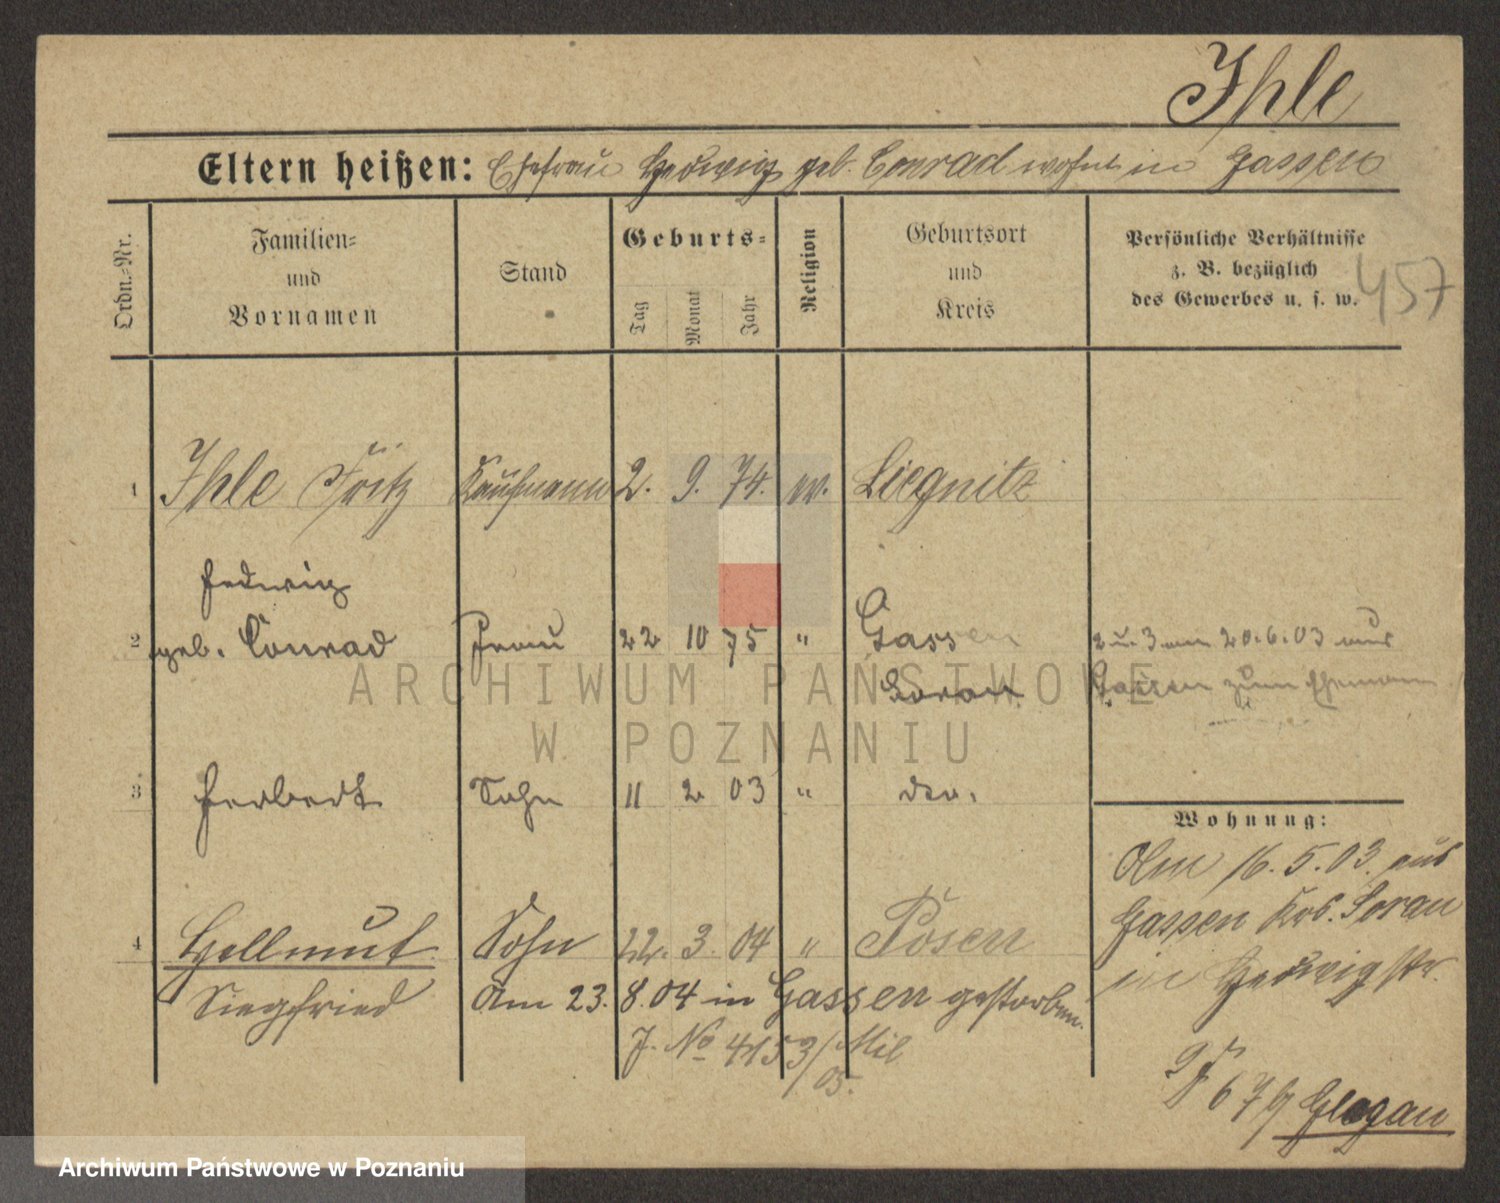 Ihle
Eltern heißen: Ehefrau Hedwig geb. Conrad wohnt in Gassen
Ordn.-Nr.
Familien-
und
Vornamen
Stand
Geburts-
Tag
Monat
Jahr
Religion
Geburtsort
und
Kreis
Persönliche Verhältnisse
z. B. bezüglich
des Gewerbes u. s. w.
457
1 Ihle Fritz Kaufmann 2. 9. 74. ev. Liegnitz
Hedwig
2 geb. Conrad Frau 22 10 75 " Gassen
Sorau
2 u. 3 am 20.6.03 aus
Gassen zum Ehemann
3 Herbert Sohn 11 2 03 " do.
Wohnung:
Am 16.5.03. aus
Gassen Krs. Sorau
in Hedwigstr.
4 Hellmut Sohn 22. 3. 04 " Posen
Siegfried Am 23. 8. 04 in Gassen gestorben.
J. No 4153/05. Mil
679 Glogau
ARCHIWUM PAŃSTWOWE
W POZNANIU
Archiwum Państwowe w Poznaniu